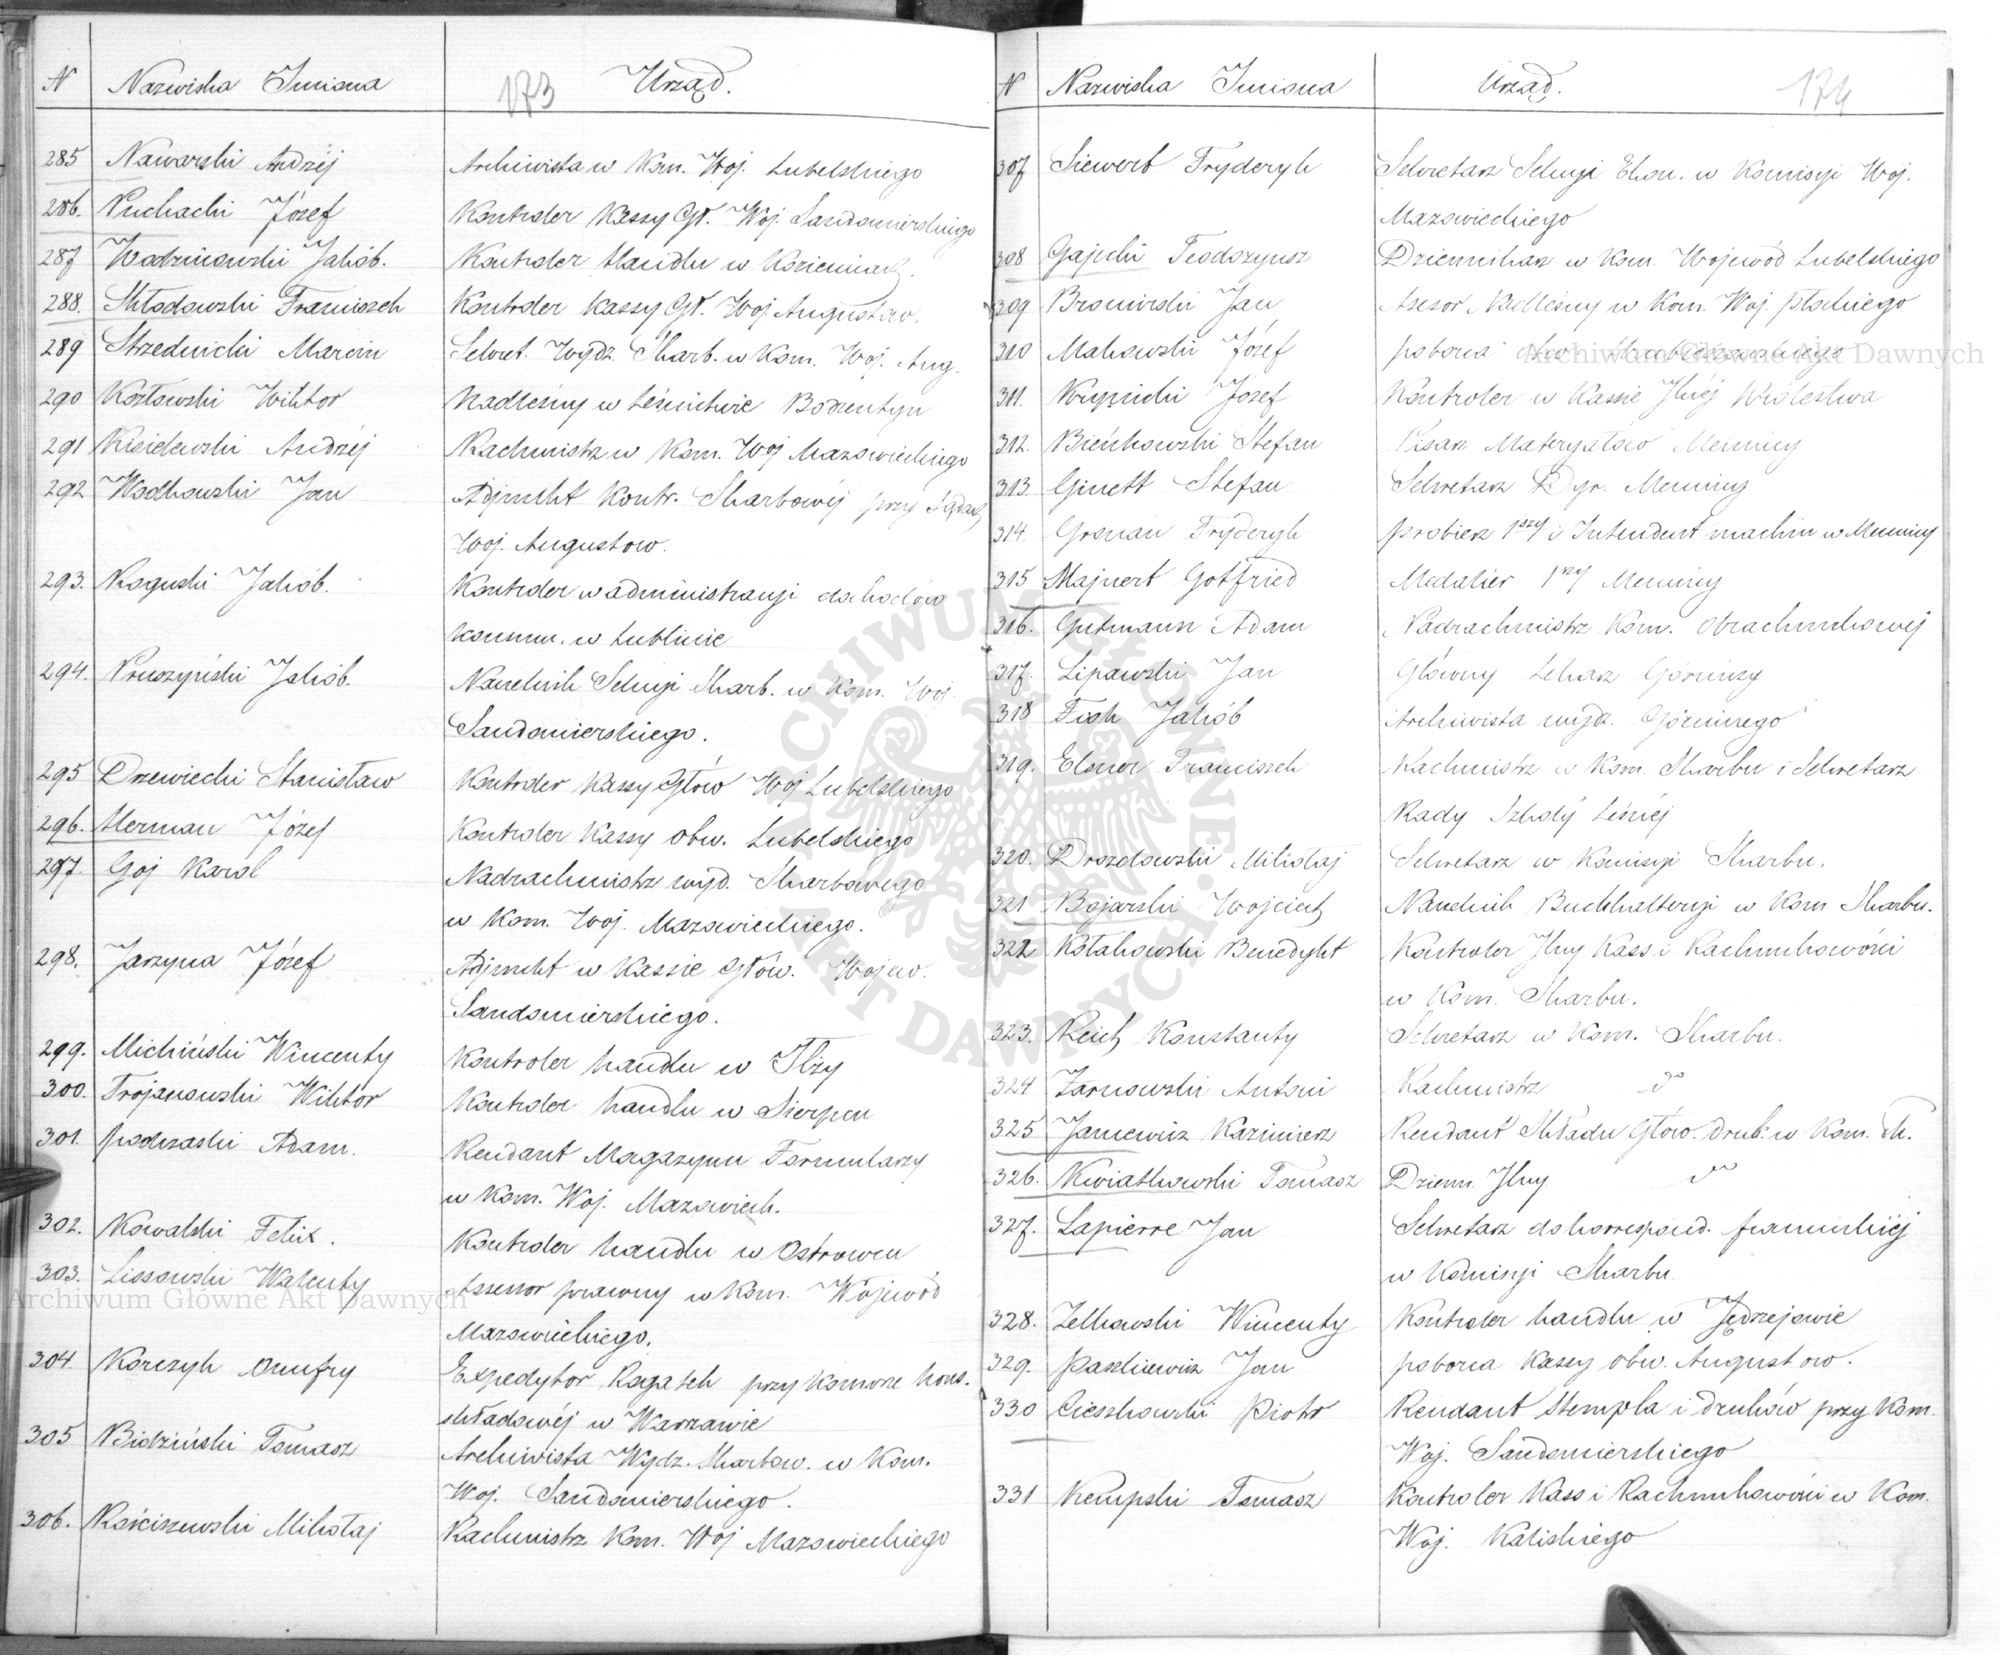 N Nazwiska Imiona 173 Urząd.
285 Nawarski Andrzéj Archiwista w Kom. Woj. Lubelskiego
286. Puchacki Józef Kontroler Kassy Gł. Woj. Sandomierskiego
287 Wodzinowski Jakób. Kontroler Handlu w Kozienicach.
288. Skłodowski Franciszek Kontroler Kassy Gł. Woj Augustow.
289 Strzednicki Marcin Sekret. Wydz. Skarb. w Kom. Woj. Aug.
290 Kozłowski Wiktor Nadleśny w Leśnictwie Bodzentyn
291 Kisielewski Andrzéj Rachmistrz w Kom. Woj Mazowieckiego
292 Wodkowski Jan Adjunkt Kontr. Skarbowéj przy
Woj. Augustow.
293. Roguski Jakób. Kontroler w administracyi dochodów
konsum. w Lublinie
294. Pruszyński Jakób. Naczelnik Sekcyi Skarb. w Kom. Woj.
Sandomierskiego.
295 Drzewiecki Stanisław Kontroler Kassy Głów Woj Lubelskiego
296. Herman Józef Kontroler Kassy obw. Lubelskiego
297. Goj Karol Nadrachmistrz wyd. Skarbowego
w Kom. Woj. Mazowieckiego.
298. Jarzyna Józef Adjunkt w Kassie Głów. Wojew.
Sandomierskiego.
299. Michiński Wincenty Kontroler handlu w Iłży
300. Trojanowski Wiktor Kontroler handlu w Sierpcu
301. Podczaski Adam. Rendant Magazynu Formularzy
w Kom. Woj. Mazowieck.
302. Kowalski Felix. Kontroler handlu w Ostrowcu
303. Lissowski Walenty Assessor prawny w Kom. Wójewód
Mazowieckiego.
304. Korczyk Onufry Expedytor Rogatek przy Komorze kons.
składowéj w Warzawie
305 Bidziński Tomasz Archiwista Wydz. Skarbow. w Kom.
Woj. Sandomierskiego.
306. Kościszewski Mikołaj Rachmistrz Kom. Woj Mazowieckiego
N Nazwiska Imiona Urząd. 174
307 Siewert Fryderyk Sekretarz Sekcyi Ekon. w Komisyi Woj.
Mazowieckiego
308 Gajecki Teodozyusz Dziennikarz w Kom. Wojewód Lubelskiego
309 Bronirski Jan Asesor Nadleśny w Kom. Woj. Płockiego
310 Makowski Józef poborca obw.
311. Krupicki Józef Kontroler w Kassie Jlnéj Królestwa
312. Bieńkowski Stefan Pisarz Materyałów Mennicy
313. Ginett Stefan Sekretarz Dyr. Mennicy
314. Gronau Fryderyk probierz 1szy i Intendent machin w Mennicy
315 Majnert Gotfried Medalier 1szy Mennicy
316. Gutmann Adam Nadrachmistrz Kom. Obrachunkowéj
317. Lipawski Jan Główny Lekarz Górniczy
318 Fich Jakób Archiwista wydz. Górniczego
319. Elsner Franciszek Rachmistrz w Kom. Skarbu i Sekretarz
Rady Szkoły Leśnéj
320. Drozdowski Mikołaj Sekretarz w Komisyi Skarbu.
321 Bojarski Wojciech Naczelnik Buchhalteryi w Kom Skarbu.
322 Kołakowski Benedykt Kontroler Jlny Kass i Rachunkowości
w Kom. Skarbu.
323. Reich Konstanty Sekretarz w Kom. Skarbu.
324 Żarnowski Antoni Rachmistrz do
325 Janiewicz Kazimierz Rendant Składu Głów. druk: w Kom. Sk.
326. Kwiatkowski Tomasz Dzienn. Jlny do
327. Lapierre Jan Sekretarz do korrespond. francuzkiéj
w Komisyi Skarbu
328. Zelkowski Wincenty Kontroler handlu w Jędrzejowie
329. Paszkiewicz Jan poborca Kassy obw. Augustow.
330 Cieszkowski Piotr Rendant Stempla i druków przy Kom.
Woj. Sandomierskiego
331 Kempski Tomasz Kontroler Kass i Rachunkowości w Kom.
Woj. Kaliskiego
Archiwum Główne Akt Dawnych
Archiwum Główne Akt Dawnych
ARCHIWUM GŁÓWNE AKT DAWNYCH